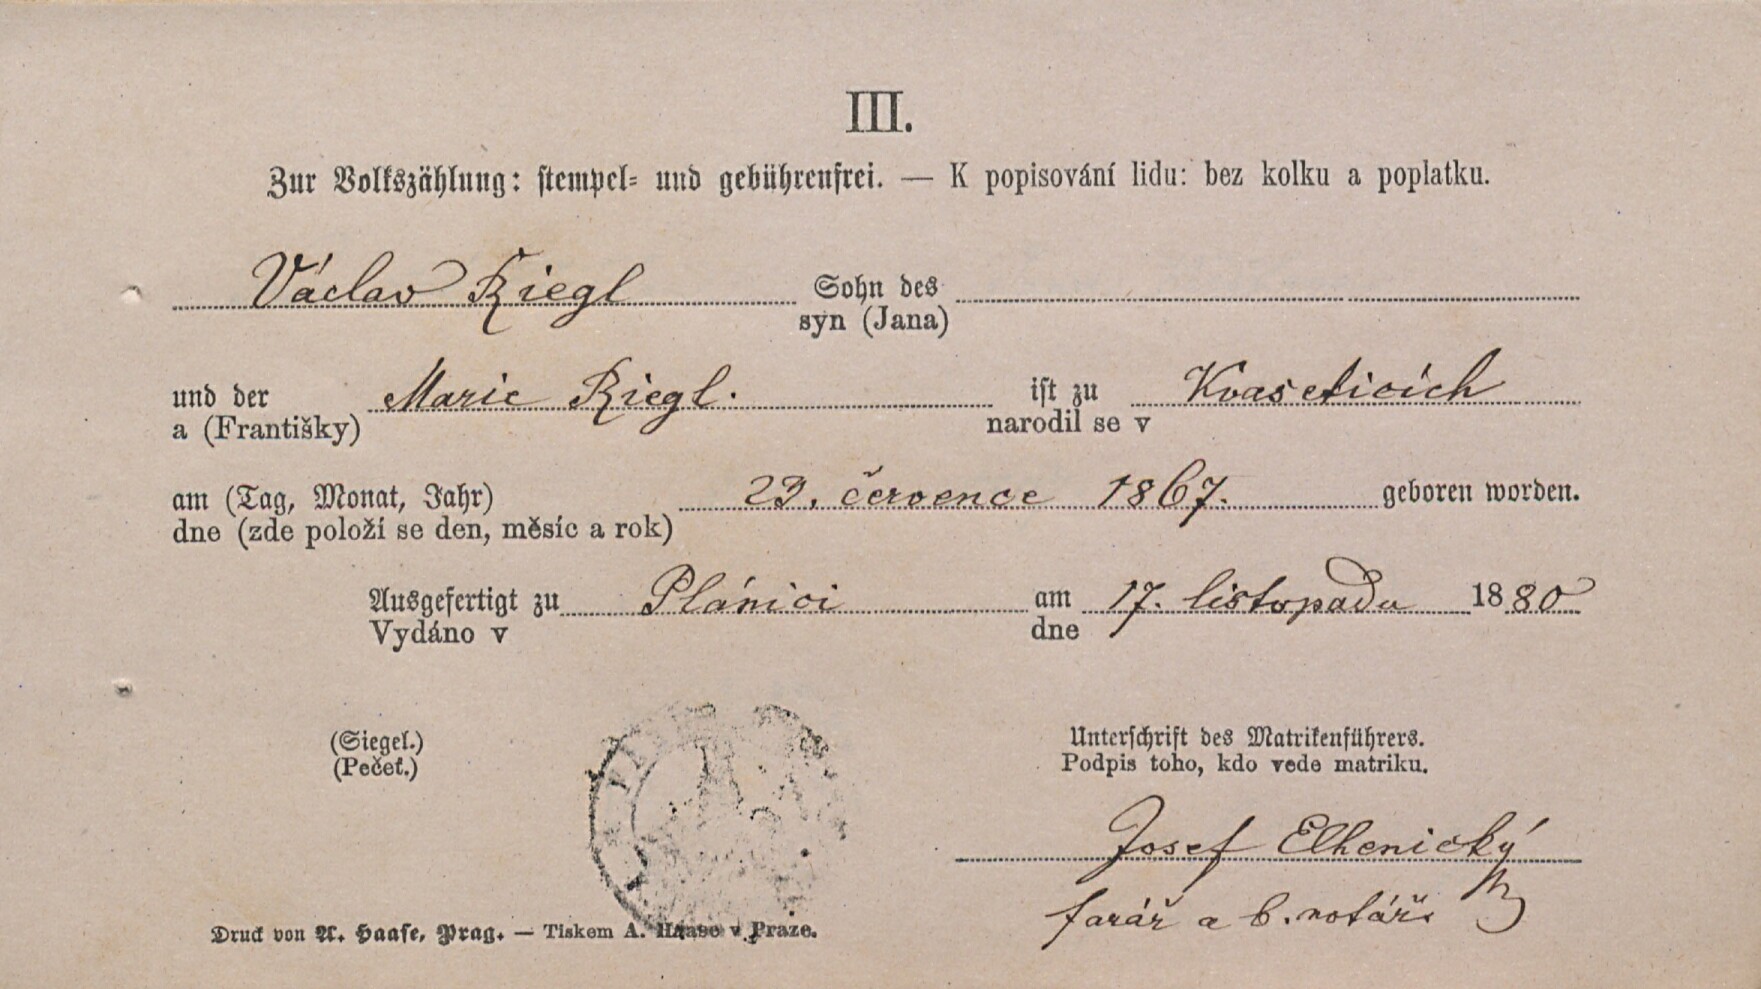 III.
Zur Volkszählung: stempel- und gebührenfrei. — K popisování lidu: bez kolku a poplatku.
Václav Riegl Sohn des
syn (Jana)
und der Marie Riegl. ist zu Kvaseticích
a (Františky) narodil se v
am (Tag, Monat, Jahr) 23. července 1867. geboren worden.
dne (zde položí se den, měsíc a rok)
Ausgefertigt zu Plánici am 17. listopadu 1880
Vydáno v dne
(Siegel.) Unterschrift des Matrikenführers.
(Pečeť.) Podpis toho, kdo vede matriku.
Josef Elhenický
farář a b. notář
Druck von A. Haase, Prag. — Tiskem A. Haase v Praze.